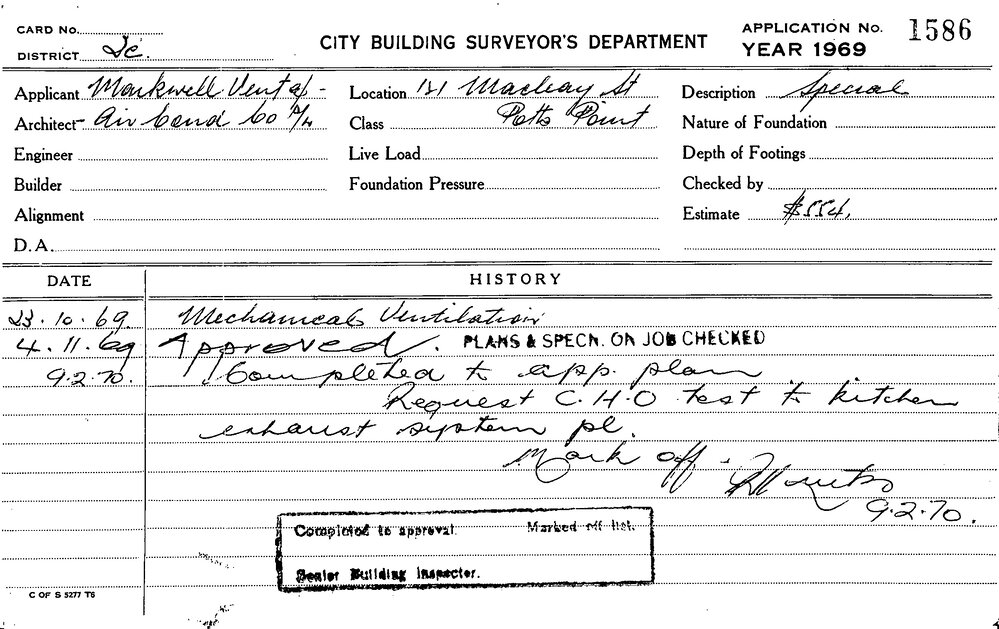 CARD No.
DISTRICT 2c.
CITY BUILDING SURVEYOR'S DEPARTMENT
APPLICATION No. 1586
YEAR 1969
Applicant Markwell Vent &
Location 121 Macleay St
Description Special
Architect Airbond Co P/L
Class Potts Point
Nature of Foundation
Engineer
Live Load
Depth of Footings
Builder
Foundation Pressure
Checked by
Alignment
Estimate $554.
D.A.
DATE HISTORY
23.10.69. Mechanical Ventilation
4.11.69 Approved. PLANS & SPECN. ON JOB CHECKED
9.2.70. Completed to app. plan
Request C.H.O test to kitchen
exhaust system pl.
Mark off.
9.2.70.
Completed to approval. Marked off list.
Senior Building Inspector.
C OF S 5277 T6